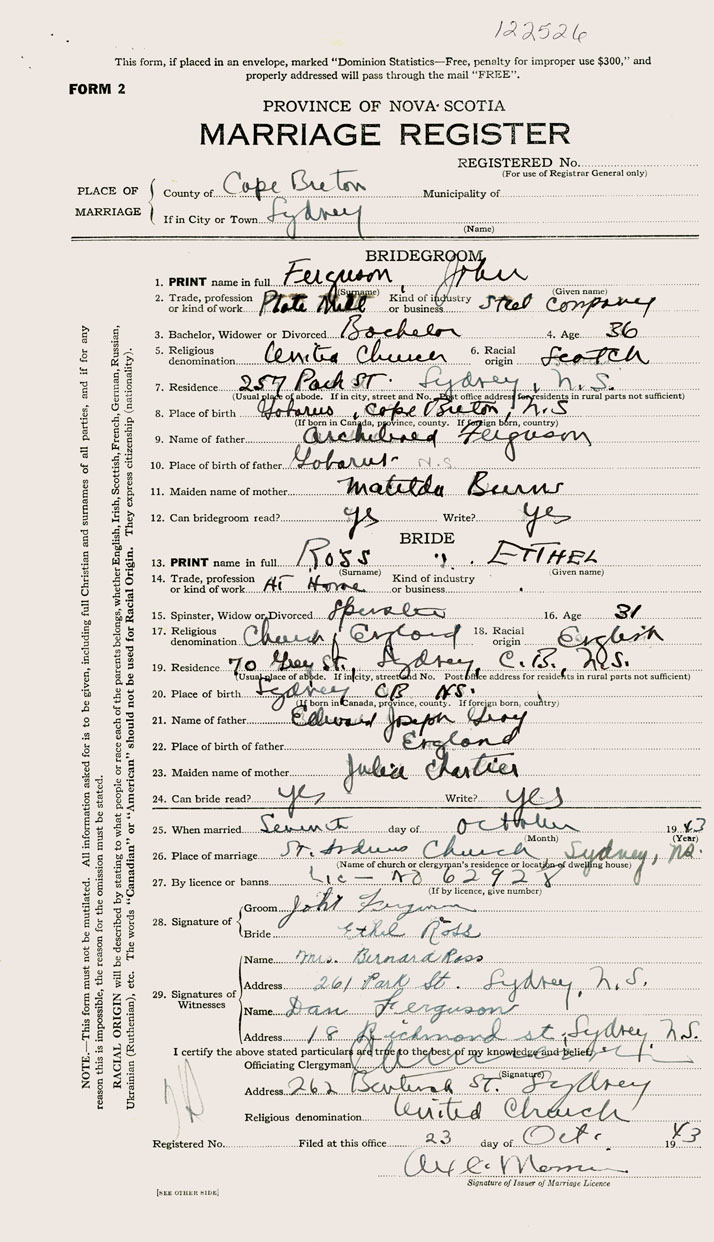 122526
This form, if placed in an envelope, marked "Dominion Statistics—Free, penalty for improper use $300," and
properly addressed will pass through the mail "FREE".
FORM 2
PROVINCE OF NOVA SCOTIA
MARRIAGE REGISTER
REGISTERED No.
(For use of Registrar General only)
PLACE OF MARRIAGE
County of Cape Breton Municipality of
If in City or Town Sydney
(Name)
BRIDEGROOM
1. PRINT name in full Ferguson, John
(Surname) (Given name)
2. Trade, profession or kind of work Plate Mill Kind of industry or business Steel Company
3. Bachelor, Widower or Divorced Bachelor 4. Age 36
5. Religious denomination United Church 6. Racial origin Scotch
7. Residence 257 Park St. Sydney, N.S.
(Usual place of abode. If in city, street and No. Post office address for residents in rural parts not sufficient)
8. Place of birth Gabarus, Cape Breton, N.S
(If born in Canada, province, county. If foreign born, country)
9. Name of father Archibald Ferguson
10. Place of birth of father Gabarus N.S.
11. Maiden name of mother Matilda Burns
12. Can bridegroom read? yes Write? yes
BRIDE
13. PRINT name in full ROSS ETHEL
(Surname) (Given name)
14. Trade, profession or kind of work At Home Kind of industry or business
15. Spinster, Widow or Divorced Spinster 16. Age 31
17. Religious denomination Church of England 18. Racial origin English
19. Residence 70 Grey St., Sydney, C.B., N.S.
(Usual place of abode. If in city, street and No. Post office address for residents in rural parts not sufficient)
20. Place of birth Sydney CB NS.
(If born in Canada, province, county. If foreign born, country)
21. Name of father Edward Joseph Gray
22. Place of birth of father England
23. Maiden name of mother Julia Chartier
24. Can bride read? yes Write? yes
25. When married Seventh day of October 1943
(Month) (Year)
26. Place of marriage St. Andrews Church, Sydney, NS.
(Name of church or clergyman's residence or location of dwelling house)
27. By licence or banns Lic — No 62928
(If by licence, give number)
28. Signature of
Groom John Ferguson
Bride Ethel Ross
29. Signatures of Witnesses
Name Mrs. Bernard Ross
Address 261 Park St. Sydney, N.S.
Name Dan Ferguson
Address 18 Richmond st, Sydney N.S.
I certify the above stated particulars are true to the best of my knowledge and belief,
Officiating Clergyman
(Signature)
Address 262 St. Sydney
Religious denomination United Church
Registered No. Filed at this office 23 day of Oct. 1943
Signature of Issuer of Marriage Licence
[SEE OTHER SIDE]
NOTE.—This form must not be mutilated. All information asked for is to be given, including full Christian and surnames of all parties, and if for any
reason this is impossible, the reason for the omission must be stated.
RACIAL ORIGIN will be described by stating to what people or race each of the parents belongs, whether English, Irish, Scottish, French, German, Russian,
Ukrainian (Ruthenian), etc. The words "Canadian" or "American" should not be used for Racial Origin. They express citizenship (nationality).